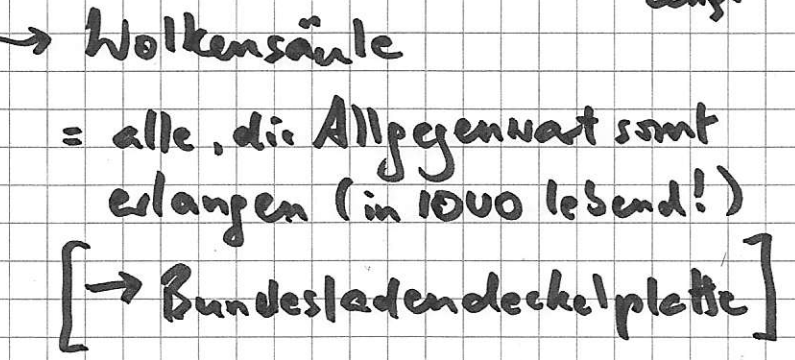 → Wolkensäule
= alle, die Allgegenwart somit
erlangen (in IOVO lebend!)
[→ Bundesladendeckelplatte]